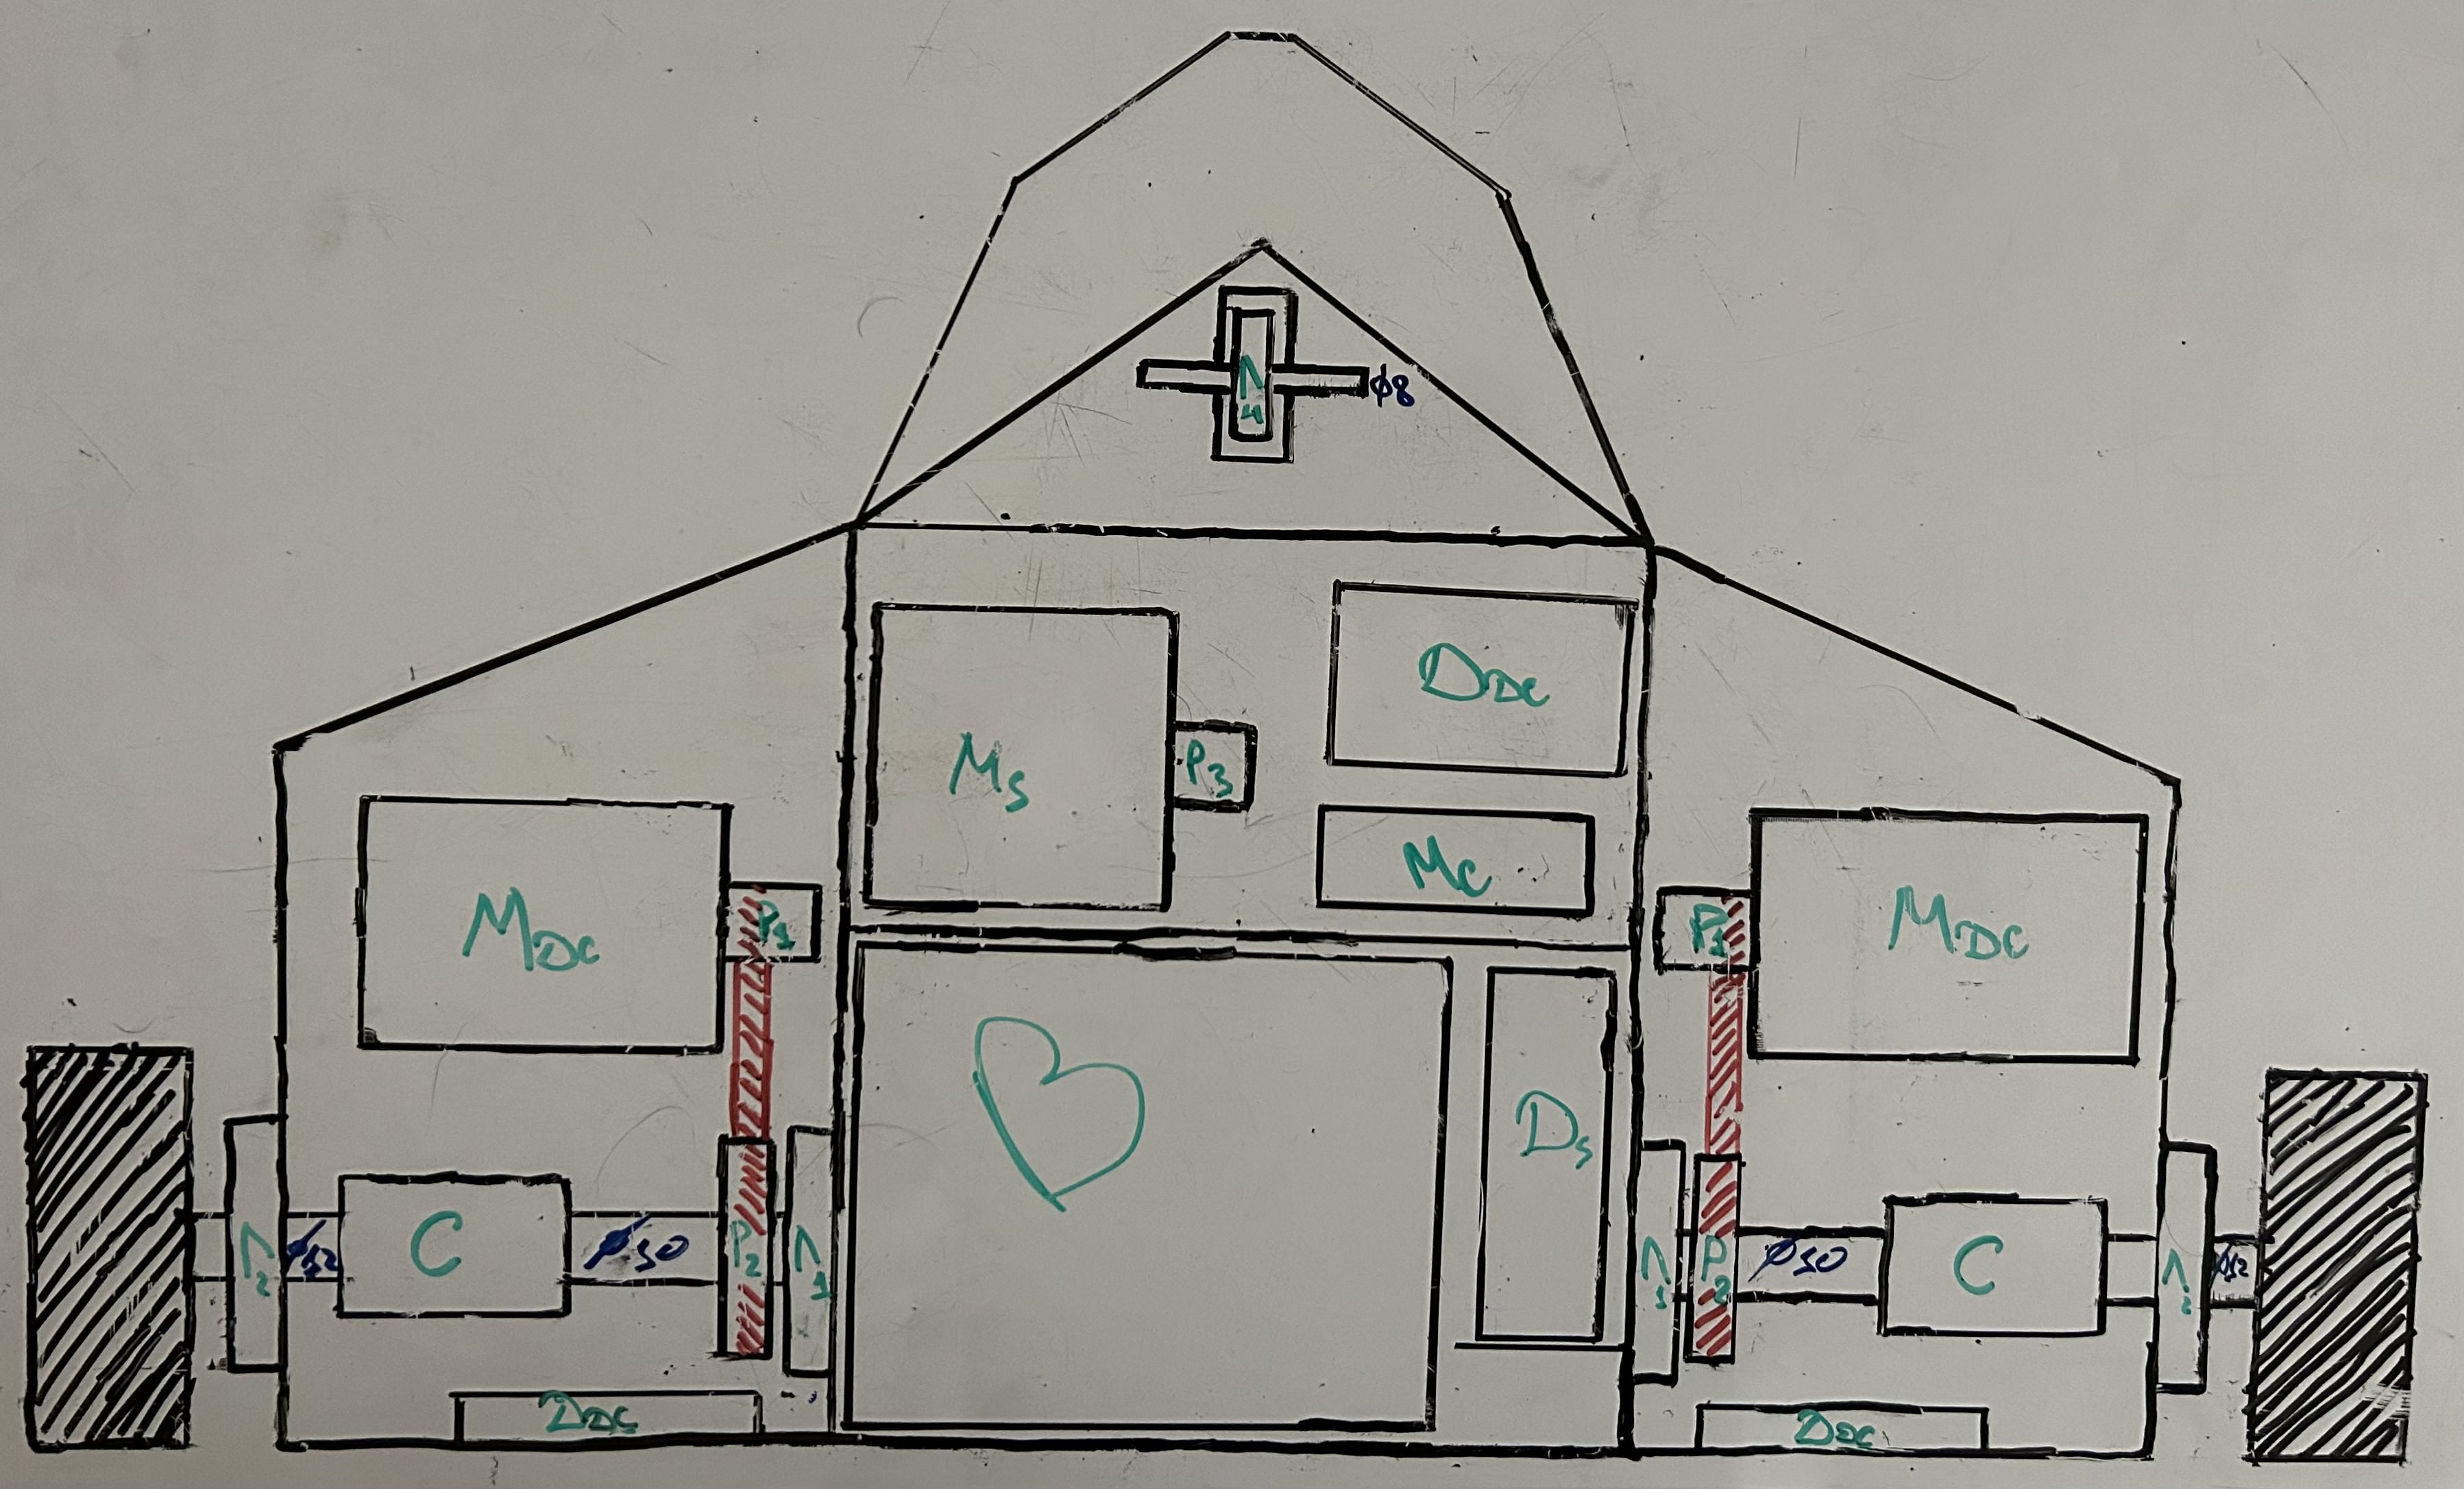 Λ4
ø8
Ms
P3
DDC
Mc
MDC
P1
P1
MDC
Ds
Λ2
ø12
C
ø10
P2
Λ1
Λ1
P2
ø10
C
Λ2
ø12
DDC
DDC